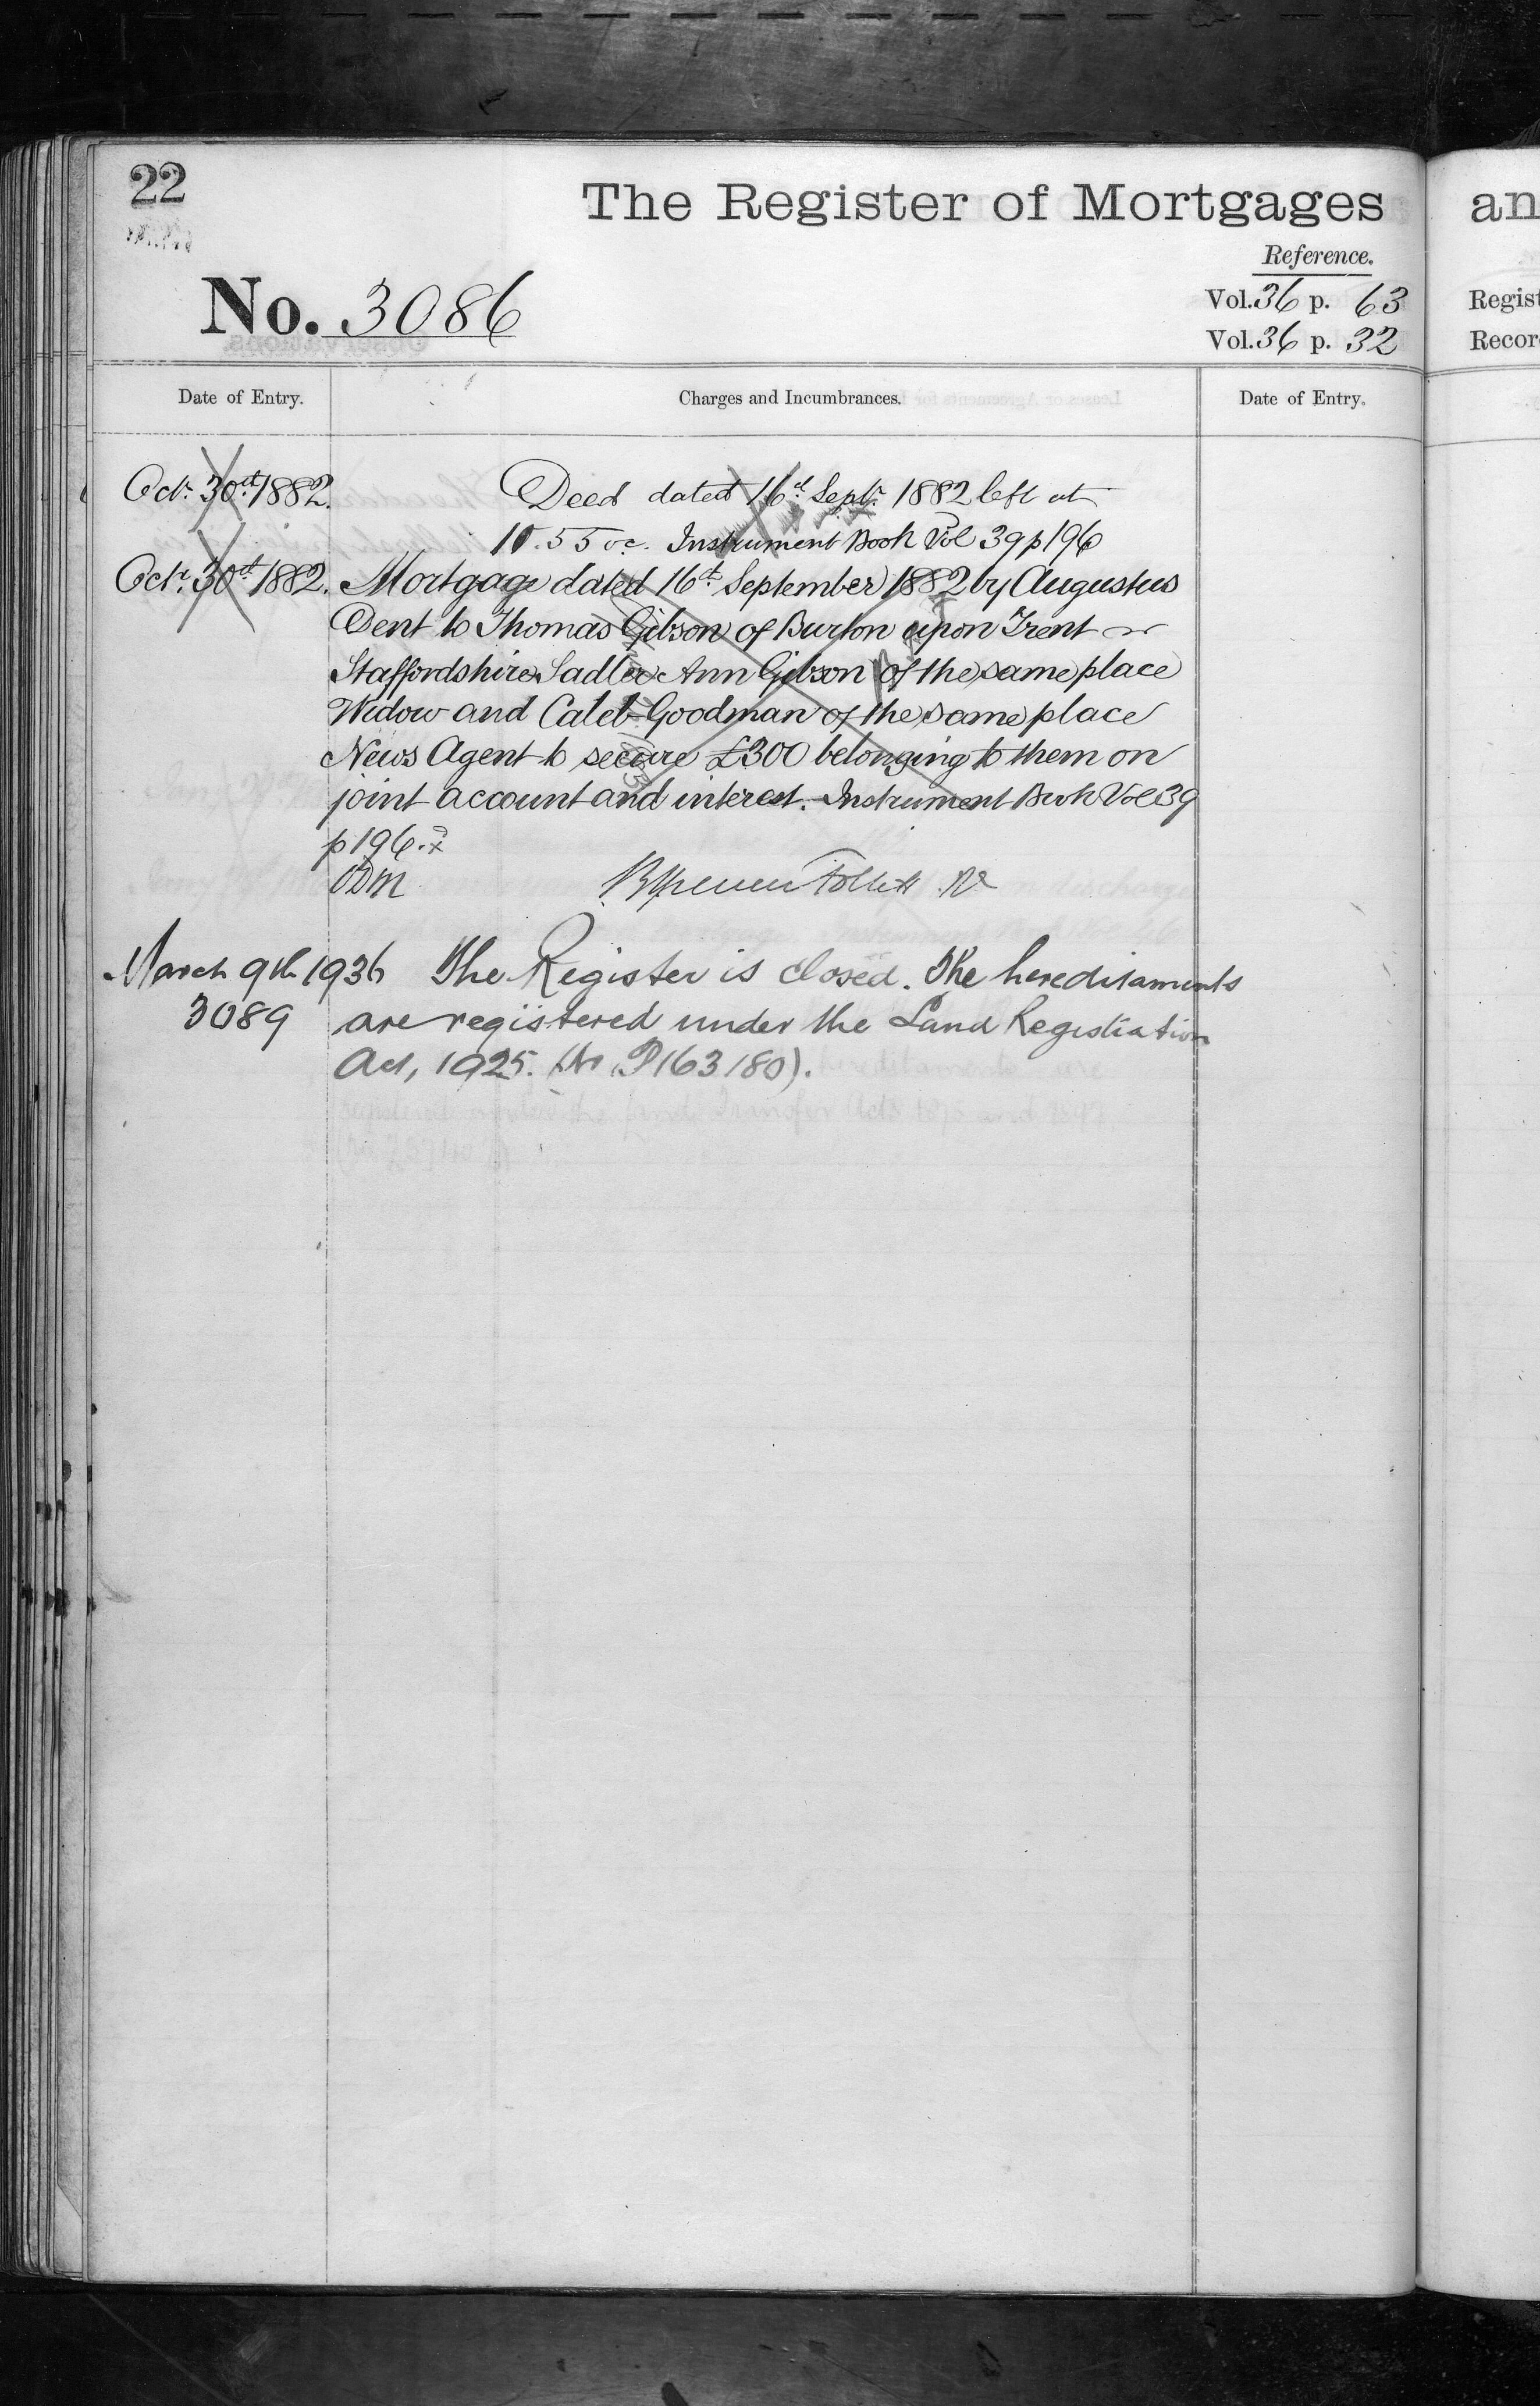 22
The Register of Mortgages
an
Reference.
No. 3086
Vol. 36 p. 63
Regist
Vol. 36 p. 32
Recor
Date of Entry.
Charges and Incumbrances.
Date of Entry.
Octr. 30th 1882.
Deed dated 16th Septr. 1882 left at
10.55 oc. Instrument Book Vol 39 p 196
Octr. 30th 1882.
Mortgage dated 16th September 1882 by Augustus
Dent to Thomas Gibson of Burton upon Trent
Staffordshire Sadler Ann Gibson of the same place
Widow and Caleb Goodman of the same place
News Agent to secure £300 belonging to them on
joint account and interest. Instrument Book Vol 39
p 196.
Follett
March 9th 1936
The Register is closed. The hereditaments
3089
are registered under the Land Registration
Act, 1925. (No P163180).